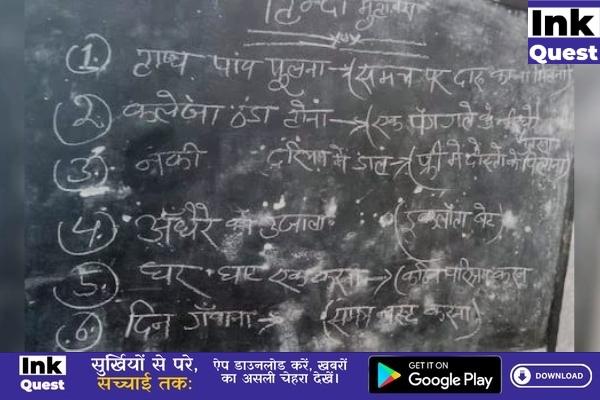 Ink
Quest
हिन्दी मुहावरा
① हाथ पांव फूलना → (समय पर दारू का न मिलना)
② कलेजा ठंडा होना → (एक पेग गले के नीचे
③ नेकी दरिया में डाल → (फ्री में दोस्तों को पिलाना)
④ अँधेरे का उजाला (इकलौता बेटा)
⑤ घर घर एक करना → (करना
⑥ दिन गँवाना → (समय नष्ट करना)
Ink
Quest
सुर्खियों से परे,
सच्चाई तक:
ऐप डाउनलोड करें, खबरों
का असली चेहरा देखें।
GET IT ON
Google Play
DOWNLOAD